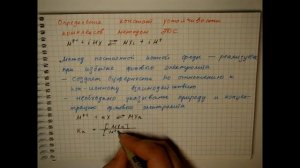 Определение констант устойчивости
комплексов методом ЭДС
M⁺ⁿ + iHX ⇌ MXi + iH⁺
Метод постоянной ионной среды – реализуется
при избытке фонового электролита
- Создает буферность по отношению к
ион-ионному взаимодействию
- необходимо указывать природу и концен-
трацию фонового электролита
M + nX ⇌ MXn
Kn = [MXn]